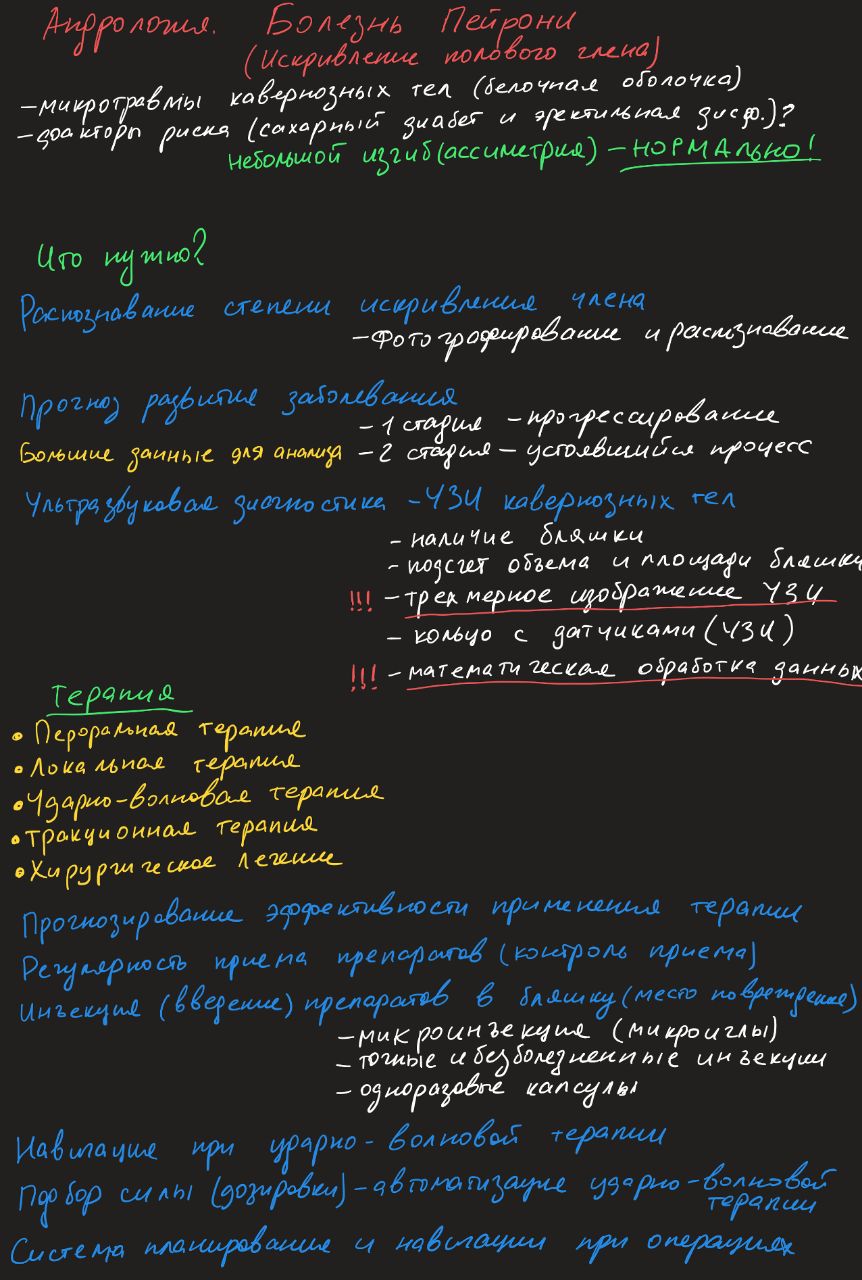 Андрология. Болезнь Пейрони
(Искривление полового члена)
- микротравмы кавернозных тел (белочная оболочка)
- факторы риска (сахарный диабет и эректильная дисф.)?
небольшой изгиб (ассиметрия) - НОРМАЛЬНО!
Что нужно?
Распознавание степени искривления члена
- Фотографирование и распознавание
Прогноз развития заболевания
- 1 стадия - прогрессирование
Большие данные для анализа - 2 стадия - устоявшийся процесс
Ультразвуковая диагностика - УЗИ кавернозных тел
- наличие бляшки
- подсчет объема и площади бляшки
!!! - трехмерное изображение УЗИ
- кольцо с датчиками (УЗИ)
!!! - математическая обработка данных
Терапия
• Пероральная терапия
• Локальная терапия
• Ударно-волновая терапия
• Тракционная терапия
• Хирургическое лечение
Прогнозирование эффективности применения терапии
Регулярность приема препаратов (контроль приема)
Инъекция (введение) препаратов в бляшку (место повреждение)
- микроинъекция (микроиглы)
- точные и безболезненные инъекции
- одноразовые капсулы
Навигация при ударно-волновой терапии
Пдобор силы (дозировки) - автоматизация ударно-волновой
терапии
Система планирование и навигации при операциях